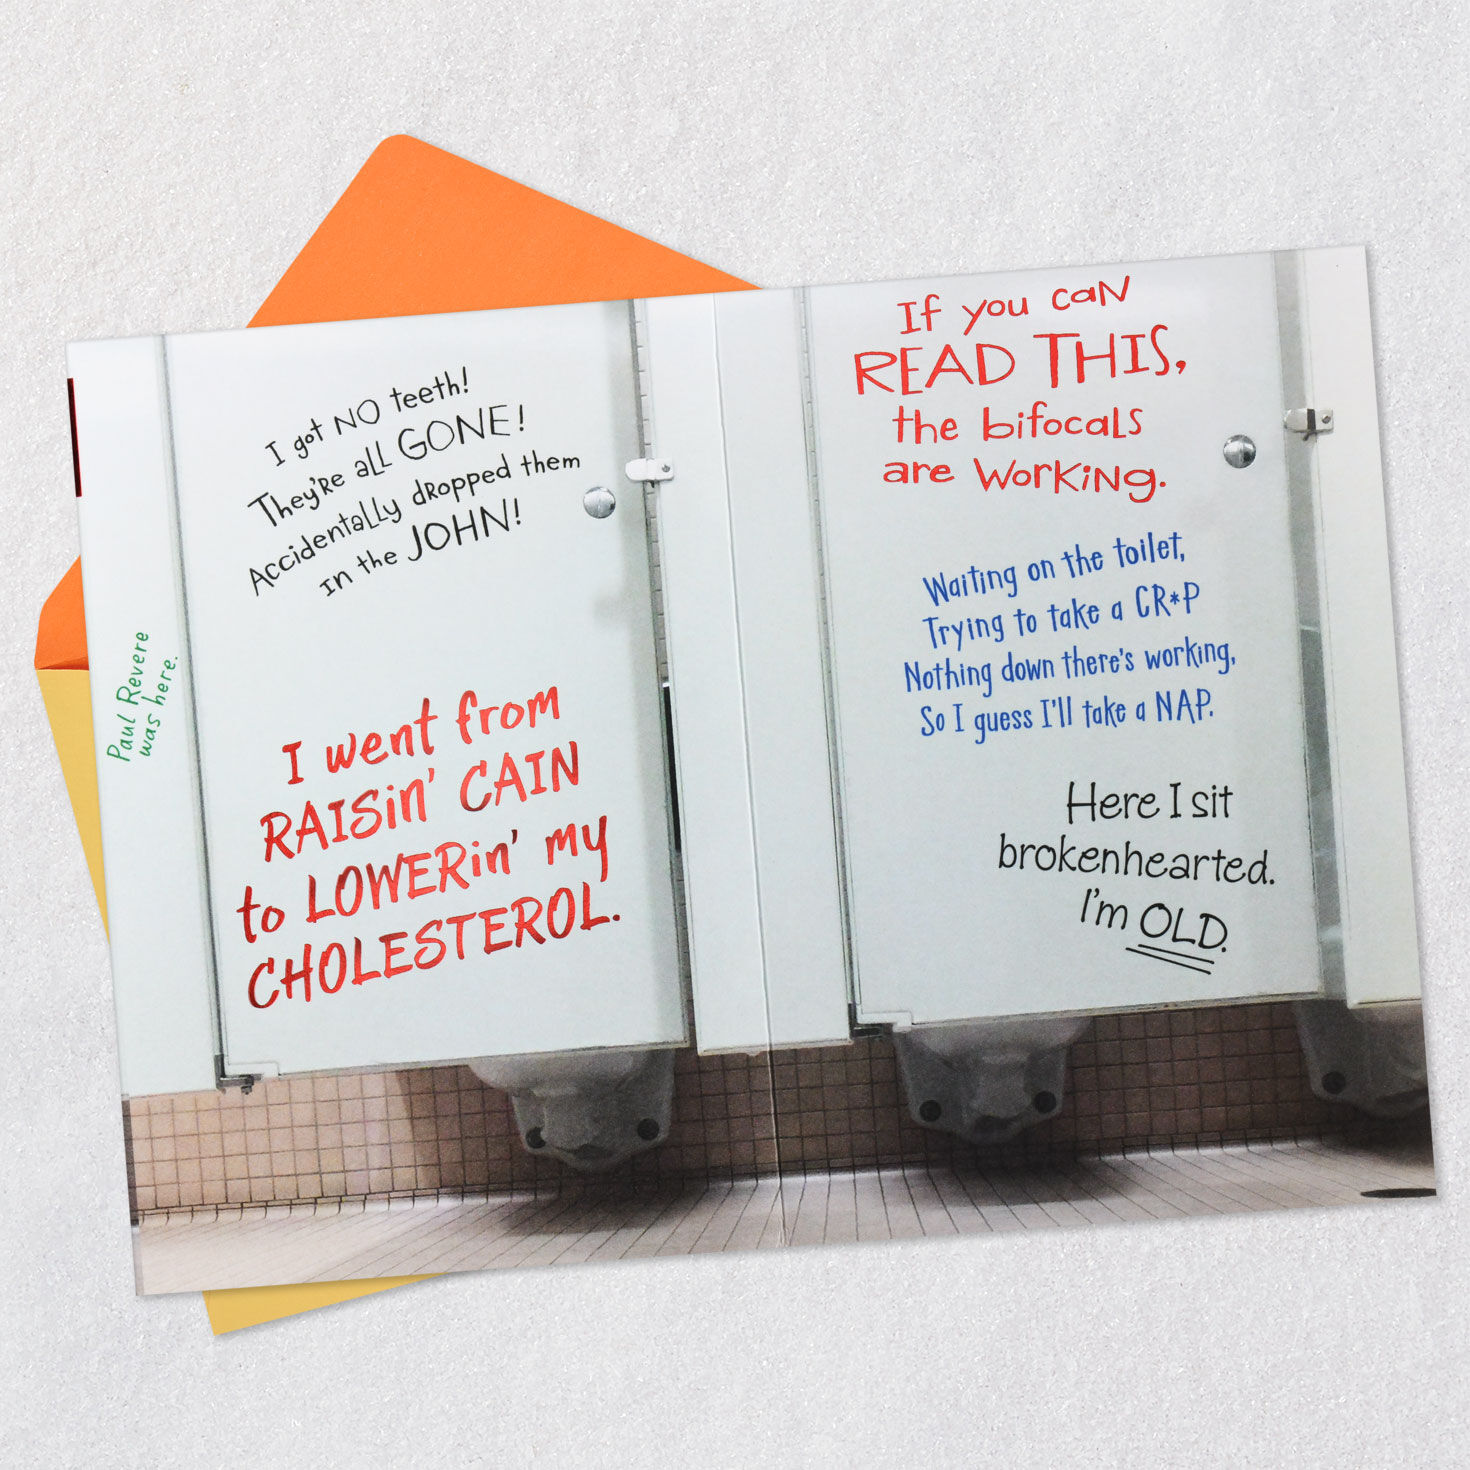 I got NO teeth!
They're all GONE!
Accidentally dropped them
in the JOHN!
Paul Revere
was here.
I went from
RAISin' CAIN
to LOWERin' my
CHOLESTEROL.
If you caN
READ THIS,
the bifocals
are working.
Waiting on the toilet,
Trying to take a CR*P
Nothing down there's working,
So I guess I'll take a NAP.
Here I sit
brokenhearted.
I'm OLD.